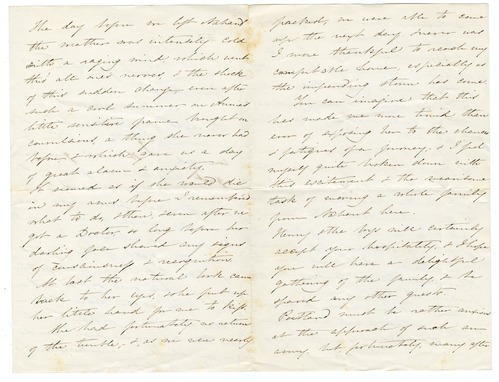 The day before we left Nahant
the weather was intensely cold
with a raging wind which went
thro' all one's nerves, & the shock
of this sudden change even after
such a cool summer on Anna's
little sensitive frame brought on
convulsions, a thing she never had
before, & which gave us a day
of great alarm & anxiety.
It seemed as if she would die
in my arms before I remembered
what to do, & then, even after we
got a Doctor, so long before her
darling face showed any signs
of consciousness & recognition.
At last the natural look came
back to her eyes, & she put up
her little hand for me to kiss.
She had fortunately no return
of the trouble, & as we were nearly
packed, we were able to come
up the next day & never was
I more thankful to reach my
comfortable home, especially as
the impending storm has come.
You can imagine that this
has made me more timid than
ever of exposing her to the chances
& fatigues of a journey, & I feel
myself quite broken down with
this excitement & the wearisome
task of moving a whole family
from Nahant here.
Henry & the boys will certainly
accept your hospitality, & I hope
you will have a delightful
gathering of the family, & be
spared any other guests.
Portland must be rather anxious
at the approach of such an
army, but fortunately, many after